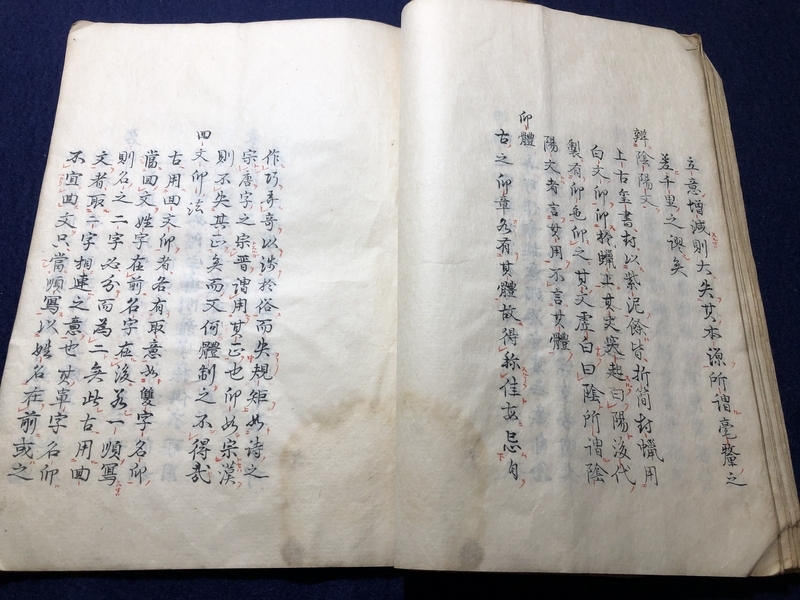 立意增減則大失其本源所謂毫釐之
差千里之謬矣
辯陰陽文
上古璽書封以紫泥餘皆折簡封蠟用
白文印印於蠟上其文突起曰陽後代
製有印色印之其文虛白曰陰所謂陰
陽文者言其用不言其體
印體
古之印章各有其體故得稱佳玄忌自
作巧弄奇以涉於俗而失規矩如詩之
宗唐字之宗晉謂用其正也印如宗漢
則不失其正矣而文何體制之不得哉
回文印法
古用曲文印者各有取意如雙字名印
當回文姓字在前名字在後若一順寫
則名之二字必分而為二矣此古用曲
文者取二字相連之意也其單字名印
不宜曲文只當順寫以姓名在前或之